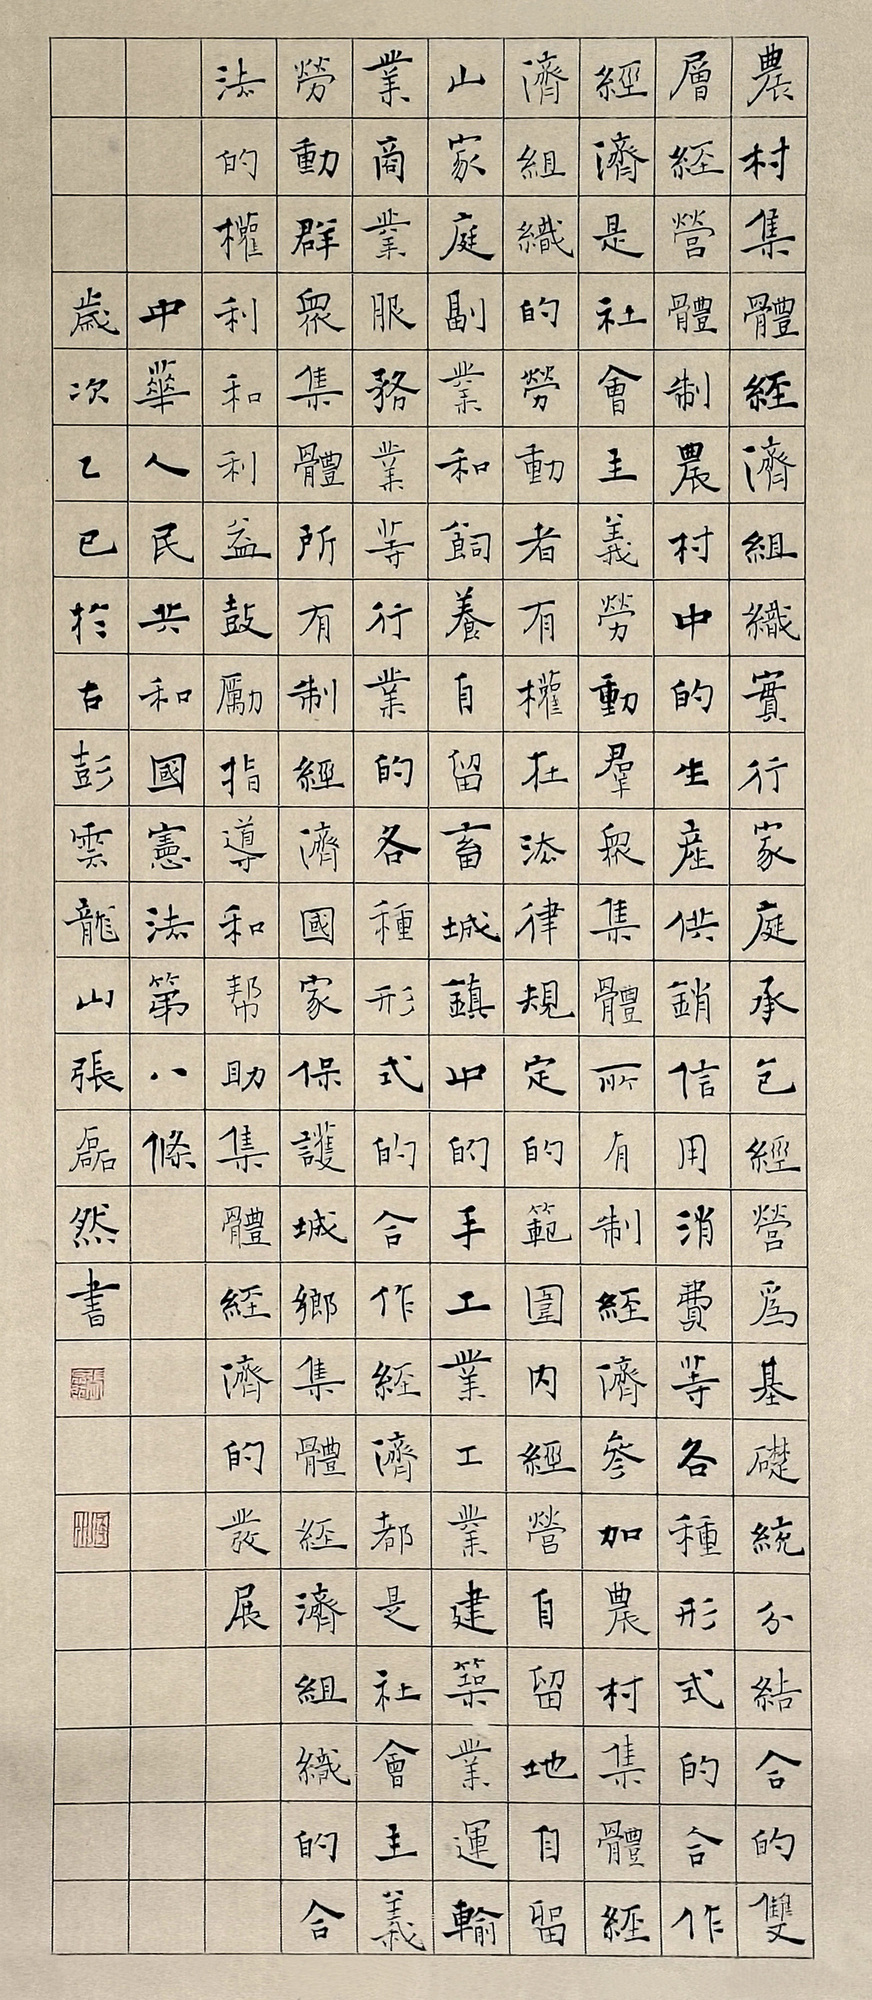 農村集體經濟組織實行家庭承包經營爲基礎統分結合的雙
層經營體制農村中的生產供銷信用消費等各種形式的合作
經濟是社會主義勞動羣衆集體所有制經濟參加農村集體經
濟組織的勞動者有權在法律規定的範圍內經營自留地自留
山家庭副業和飼養自留畜城鎮中的手工業工業建築業運輸
業商業服務業等行業的各種形式的合作經濟都是社會主義
勞動群衆集體所有制經濟國家保護城鄉集體經濟組織的合
法的權利和利益鼓勵指導和幫助集體經濟的發展
中華人民共和國憲法第八條
歲次乙巳於古彭雲龍山張磊然書